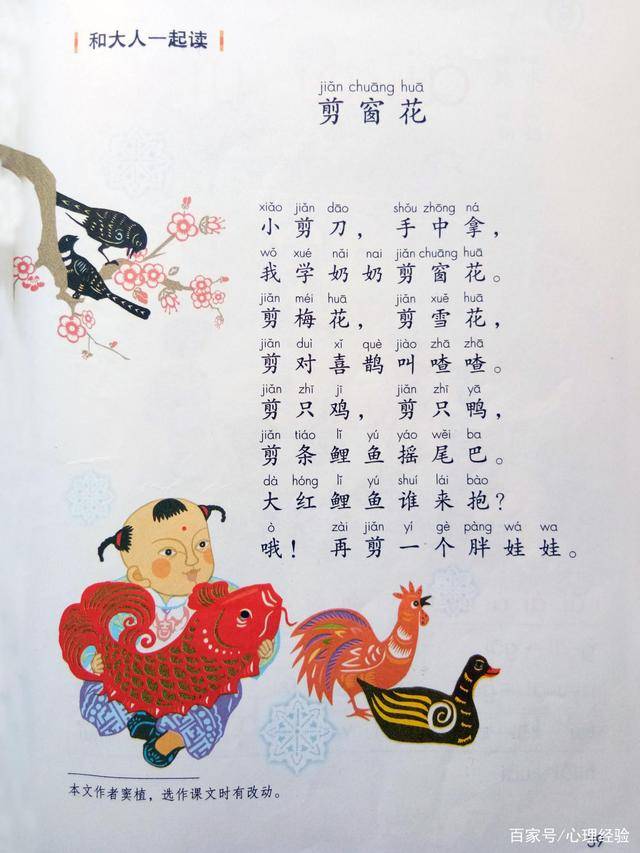 和大人一起读
jiǎn chuāng huā
剪窗花
xiǎo jiǎn dāo shǒu zhōng ná
小剪刀，手中拿，
wǒ xué nǎi nai jiǎn chuāng huā
我学奶奶剪窗花。
jiǎn méi huā jiǎn xuě huā
剪梅花，剪雪花，
jiǎn duì xǐ què jiào zhā zhā
剪对喜鹊叫喳喳。
jiǎn zhī jī jiǎn zhī yā
剪只鸡，剪只鸭，
jiǎn tiáo lǐ yú yáo wěi ba
剪条鲤鱼摇尾巴。
dà hóng lǐ yú shuí lái bào
大红鲤鱼谁来抱？
ò zài jiǎn yí gè pàng wá wa
哦！再剪一个胖娃娃。
本文作者窦植，选作课文时有改动。
百家号/心理经验